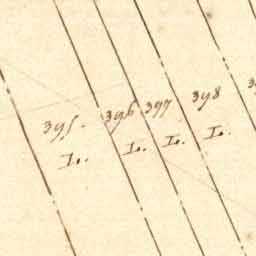 395. 396 397 398
L. L. L. L.